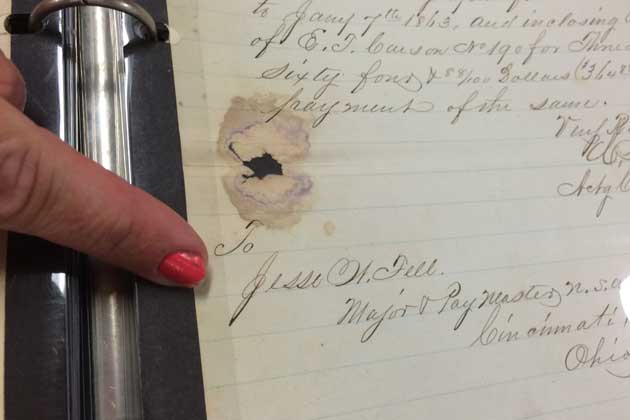 to Jany 7th 1863, and inclosing
of E. T. Carson No 190 for Three
sixty four & 88/100 Dollars ($364 88
payment of the same.
Very R
Actg
To
Jesse W. Fell.
Major & Pay Master, U.S.A
Cincinnati
Ohio